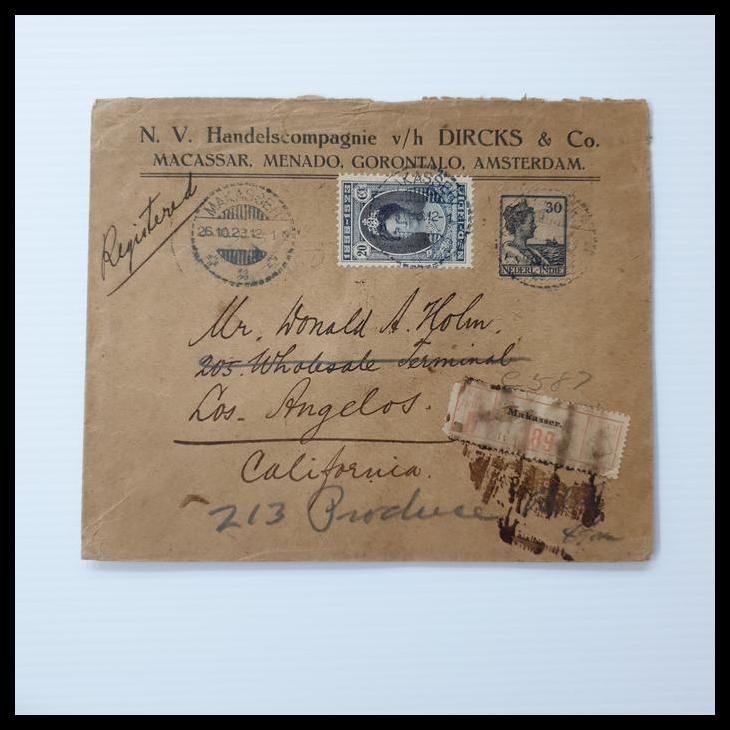 N. V. Handelscompagnie v/h DIRCKS & Co.
MACASSAR, MENADO, GORONTALO, AMSTERDAM.
Registered
MAKASSER
26.10.23.12-1
20
30
NEDERL-INDIE
Mr. Donald A. Holm.
205 Wholesale Terminal
Los Angelos.
California.
587
Makasser.
213 Produce